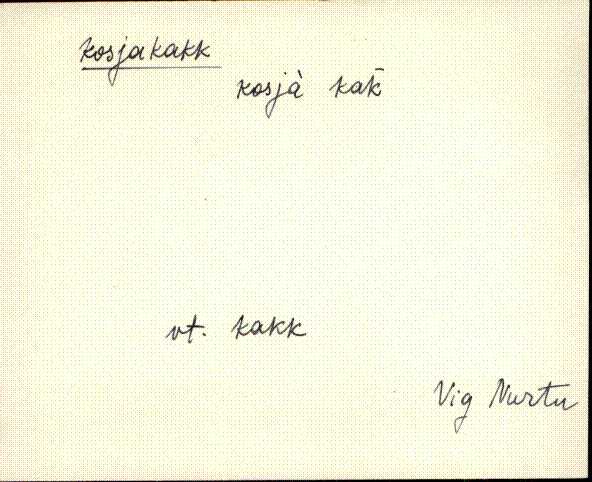 kosjakakk
kosjà kak̄
vt. kakk
Vig Nurtu